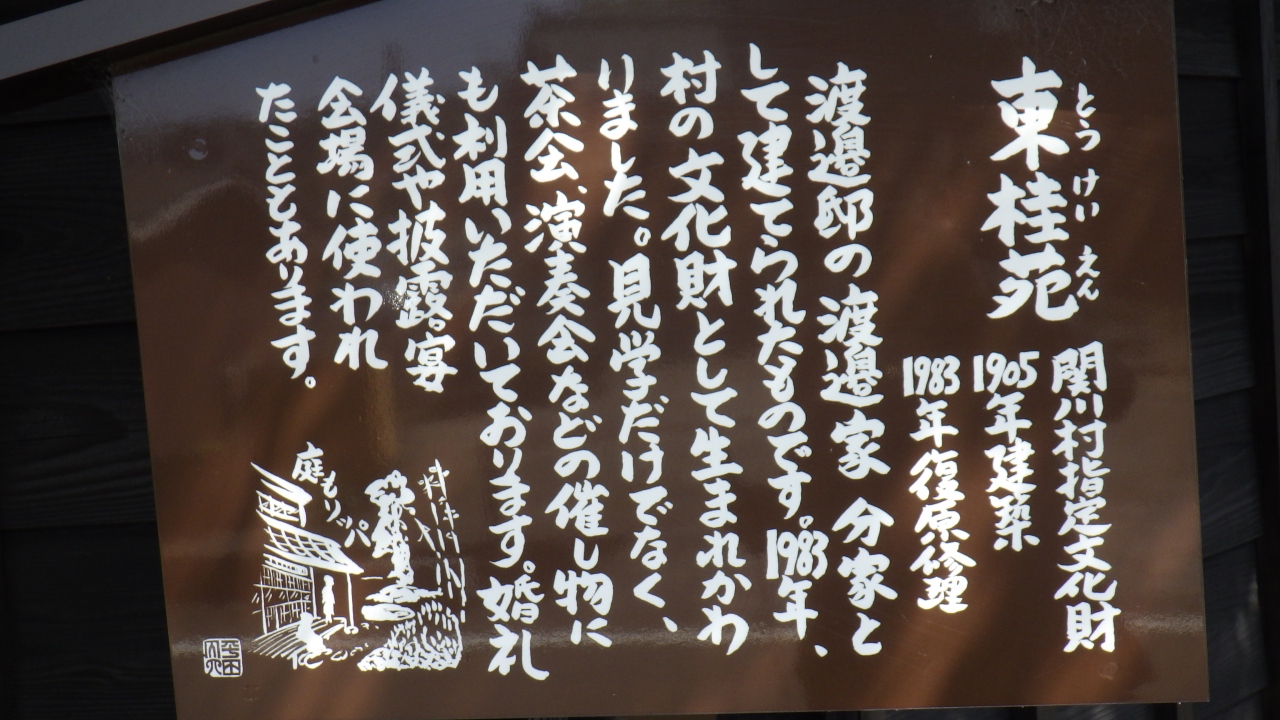 東桂苑
とうけいえん
関川村指定文化財
1905年建築
1983年復原修理
渡邉邸の渡邉家 分家と
して建てられたものです。1983年、
村の文化財として生まれかわ
りました。見学だけでなく、
茶会、演奏会などの催し物に
も利用いただいております。婚礼
儀式や披露宴
会場に使われ
たこともあります。
庭もリッパ